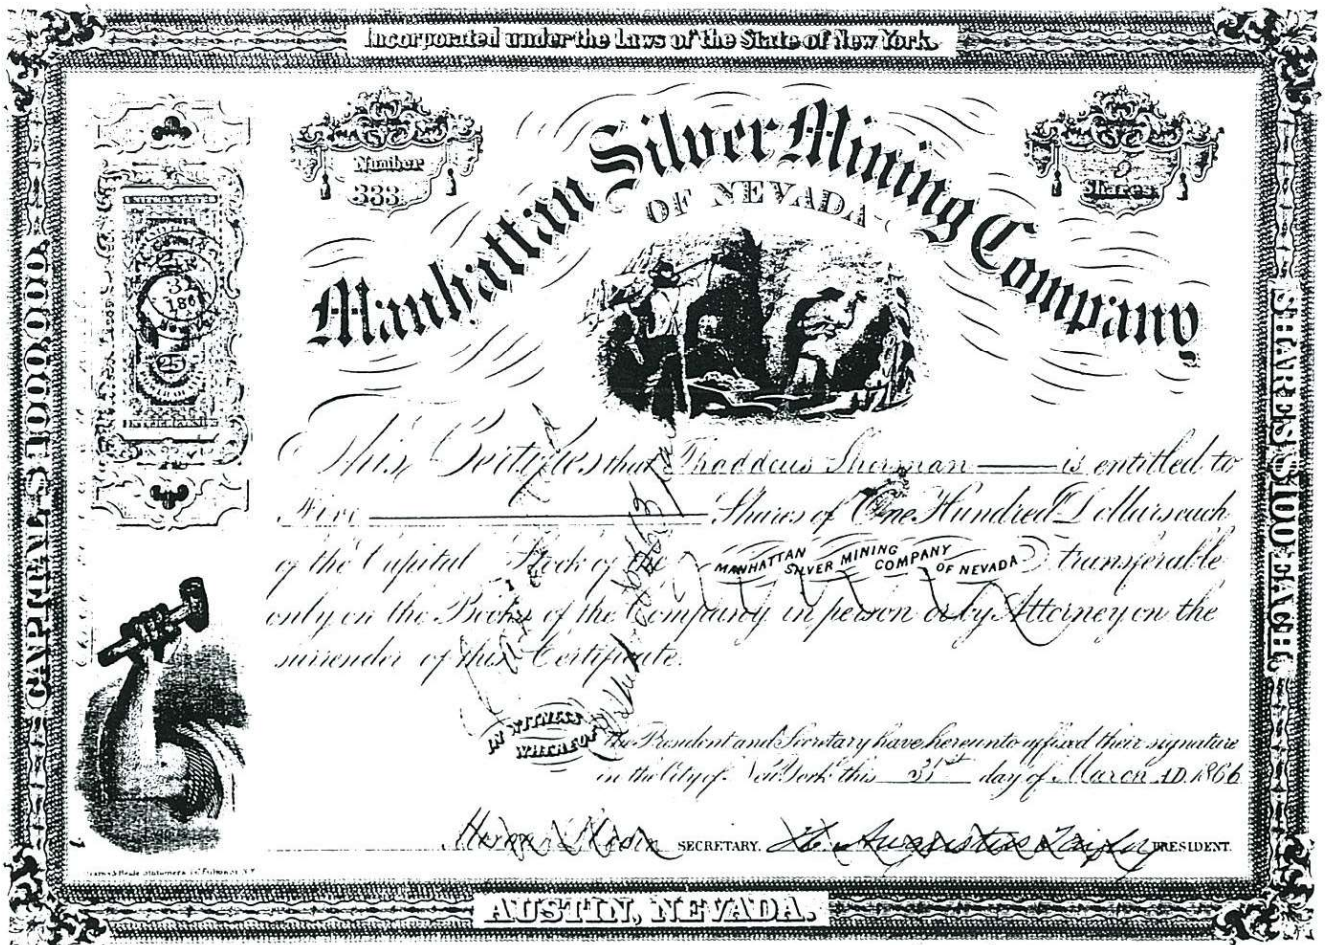 Incorporated under the Laws of the State of New York.
Number
333
5
Shares
Manhattan Silver Mining Company
OF NEVADA
CAPITAL $1000,000.
SHARES $100 EACH.
This Certifies that Thaddeus Sherman is entitled to
Five Shares of One Hundred Dollars each
of the Capital Stock of the MANHATTAN SILVER MINING COMPANY OF NEVADA transferable
only on the Books of the Company in person or by Attorney on the
surrender of this Certificate.
IN WITNESS WHEREOF the President and Secretary have hereunto affixed their signature
in the City of New York this 31st day of March AD. 1866
SECRETARY. PRESIDENT.
AUSTIN, NEVADA.